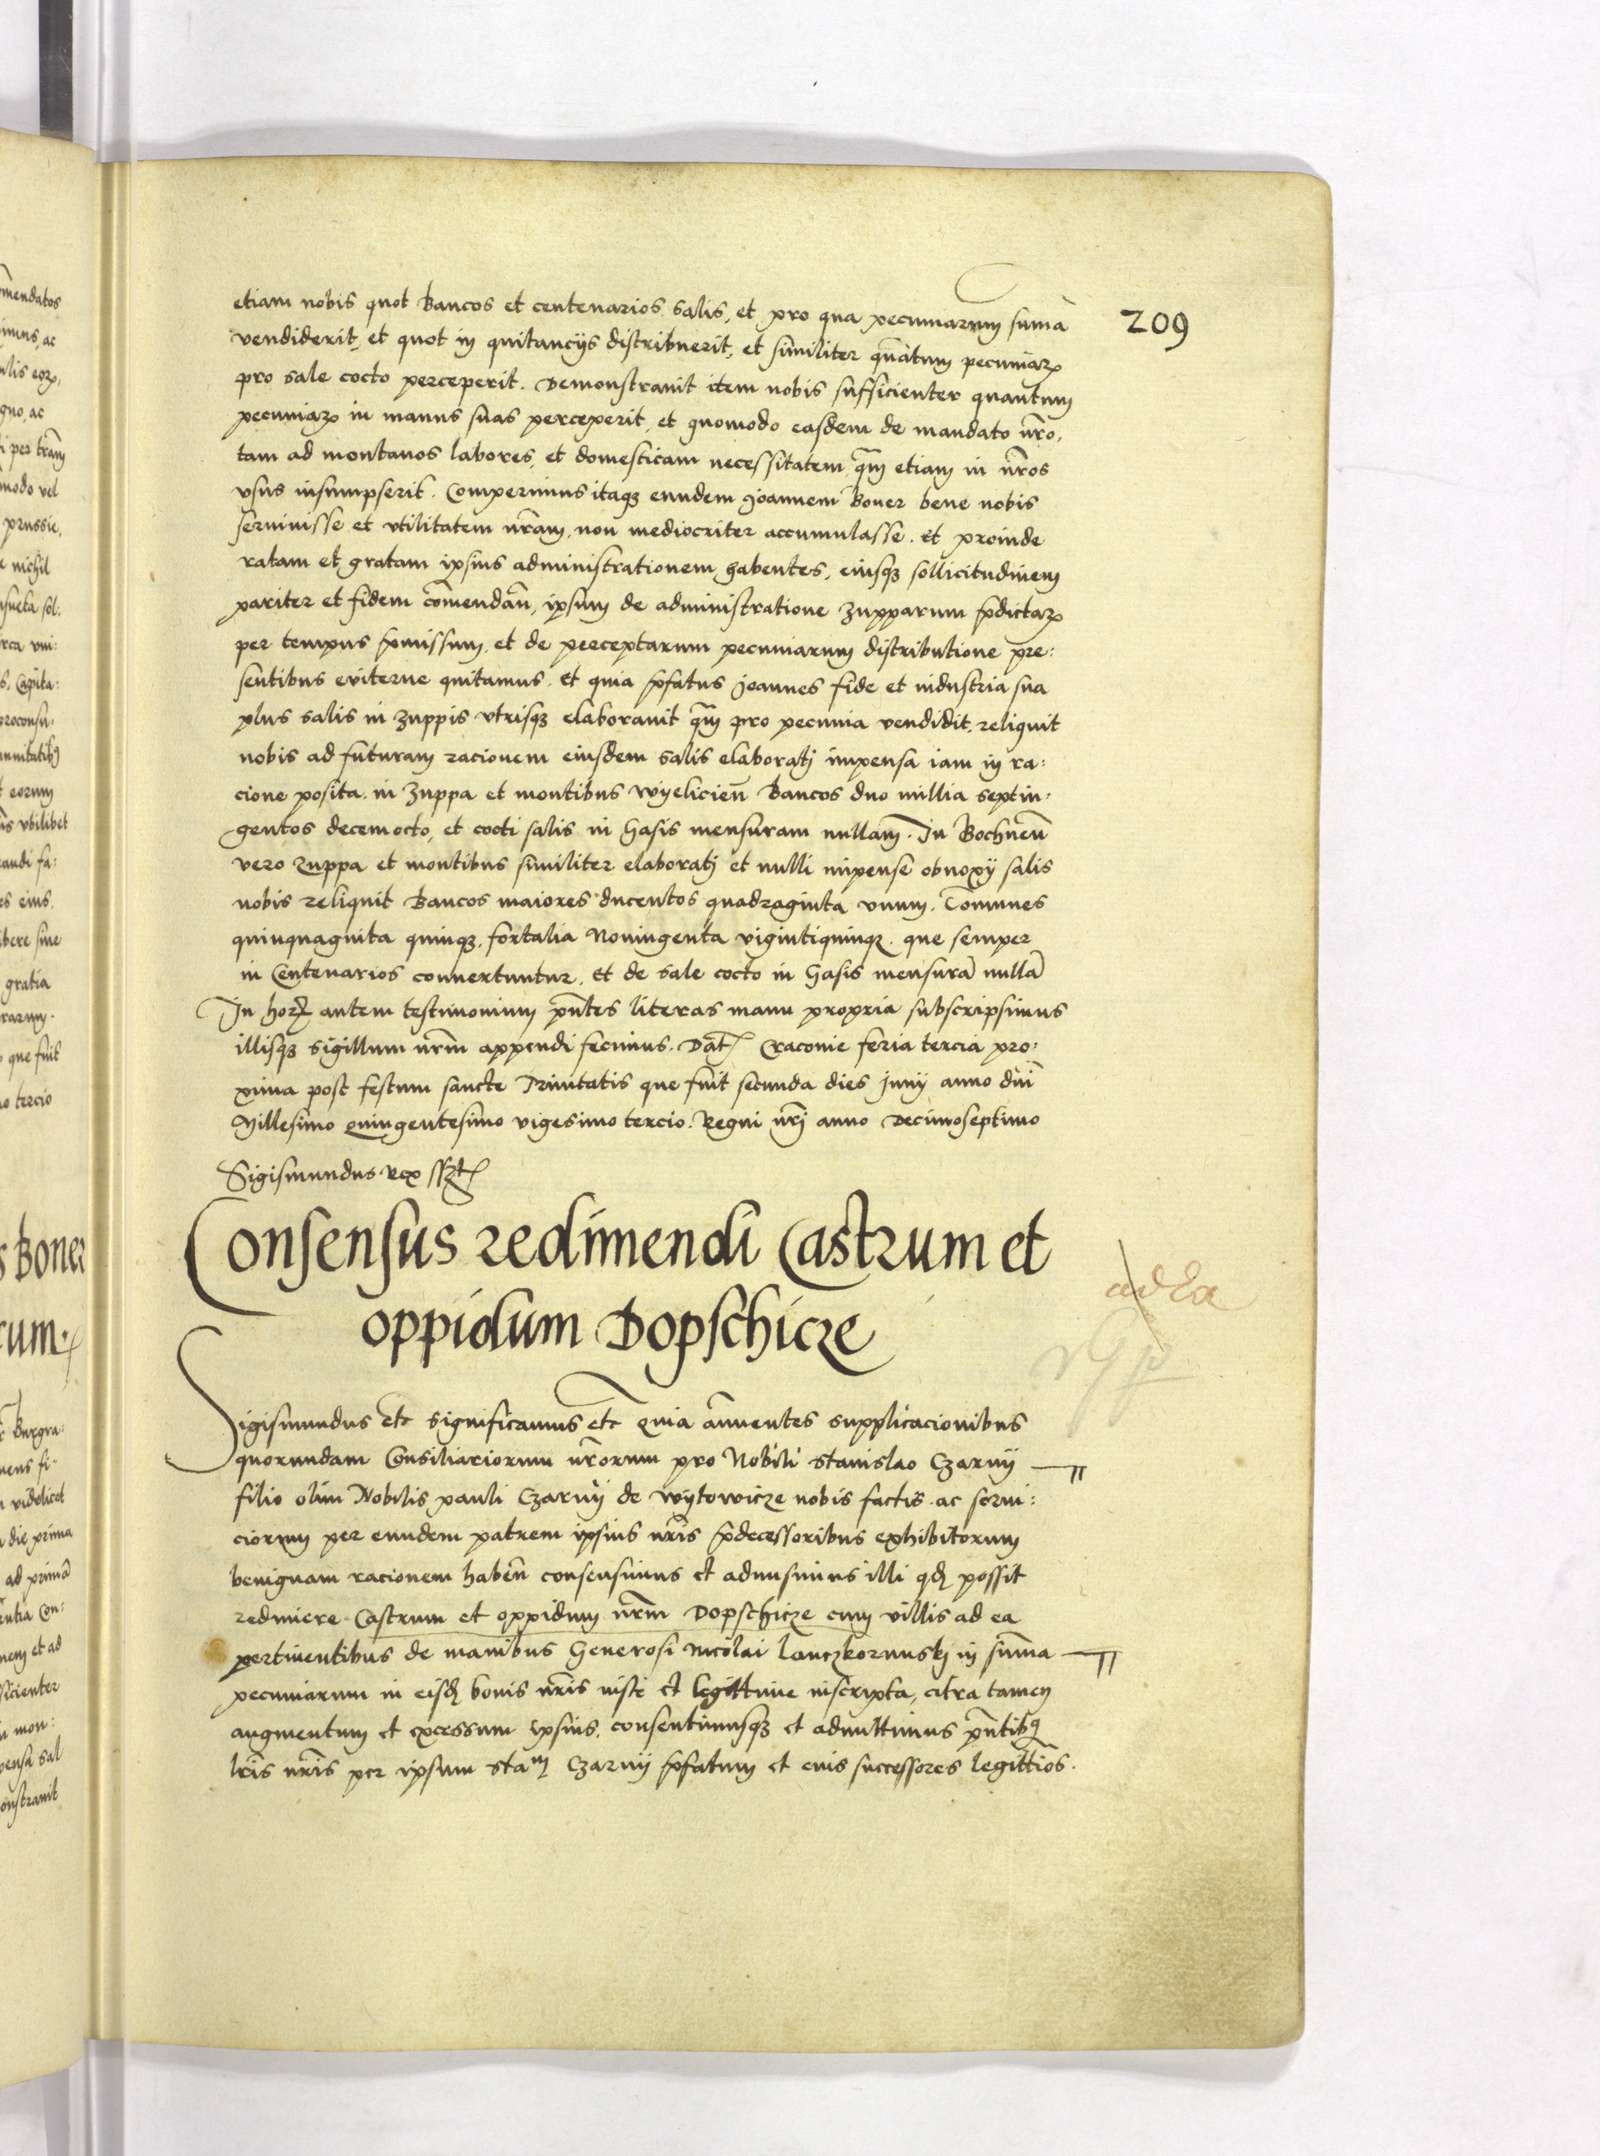 209
etiam nobis quot Bancos et centenarios salis, et pro qua pecuniarum sum̄a
vendiderit, et quot in quitancijs distribuerit, et similiter quātum pecuniaꝝ
pro sale cocto perceperit. Demonstravit item nobis sufficienter quantum
pecuniaꝝ in manus suas perceperit, et quomodo easdem de mandato nr̄o,
tam ad montanos labores, et domesticam necessitatem q̄m etiam in nr̄os
vsus insumpserit. Comperimus itaqꝫ eundem Joannem Boner bene nobis
seruiuisse et vtilitatem nr̄am, non mediocriter accumulasse. Et proinde
ratam et gratam ipsius administrationem habentes, eiusqꝫ sollicitudinem
pariter et fidem com̄endan̄, ipsum de administratione Zupparum p̄dictaꝝ
per tempus p̄missum, et de perceptarum pecuniarum distributione pre:
sentibus eviterne quitamus. Et quia p̄fatus Joannes fide et industria sua
plus salis in Zuppis vtrisqꝫ elaborauit q̄m pro pecunia vendidit, reliquit
nobis ad futuram racionem eiusdem salis elaboratj impensa iam in ra:
cione posita in Zuppa et montibus Wyelicien̄ Bancos duo millia septin:
gentos decemocto, et cocti salis in hasis mensuram nullam. In Bochnen̄
vero Zuppa et montibus similiter elaboratj et nulli impense obnoxij salis
nobis reliquit Bancos maiores ducentos quadraginta vnum. Com̄unes
quinquaginta quinqꝫ, fortalia Noningenta vigintiquinqꝫ. que semper
in Centenarios conuertuntur. et de sale cocto in hasis mensurā nullā
In hoꝝ autem testimonium pn̄tes literas manu propria subscripsimus
illisqꝫ sigillum nr̄m appendi fecimus. Dat̄ Cracouie feria tercia pro:
xima post festum sancte Trinitatis que fuit secunda dies Junij anno dn̄i
Millesimo Quingentesimo vigesimo tercio. Regni nr̄j anno Decimoseptimo
Sigismundus Rex sszt
Consensus redimendi Castrum et
oppidum Dopschicze
Sigismundus etc significamus etc Quia an̄uentes supplicacionibus
quorundam Consiliariorum nr̄orum pro Nobili Stanislao Czarnij
filio olim Nobilis Pauli Czarnij de Wytowicze nobis factis ac serui:
ciorum per eundem patrem ipsius nr̄is p̄decessoribus exhibitorum
benignam racionem haben̄ consensimus et admisimus illi qđ possit
redimere Castrum et oppidum nr̄m Dopschicze cum villis ad ea
pertinentibus de manibus Generosi Nicolai Lanczkorunskj in sum̄a
pecuniarum in eisđ bonis nr̄is iuste et legittime inscripta, citra tamen
augmentum et excessum ipsius. consentimusqꝫ et admittimus pn̄tibꝰ
lr̄is nr̄is per ipsum Sta^m Czarnij p̄fatum et eius successores legittīos.